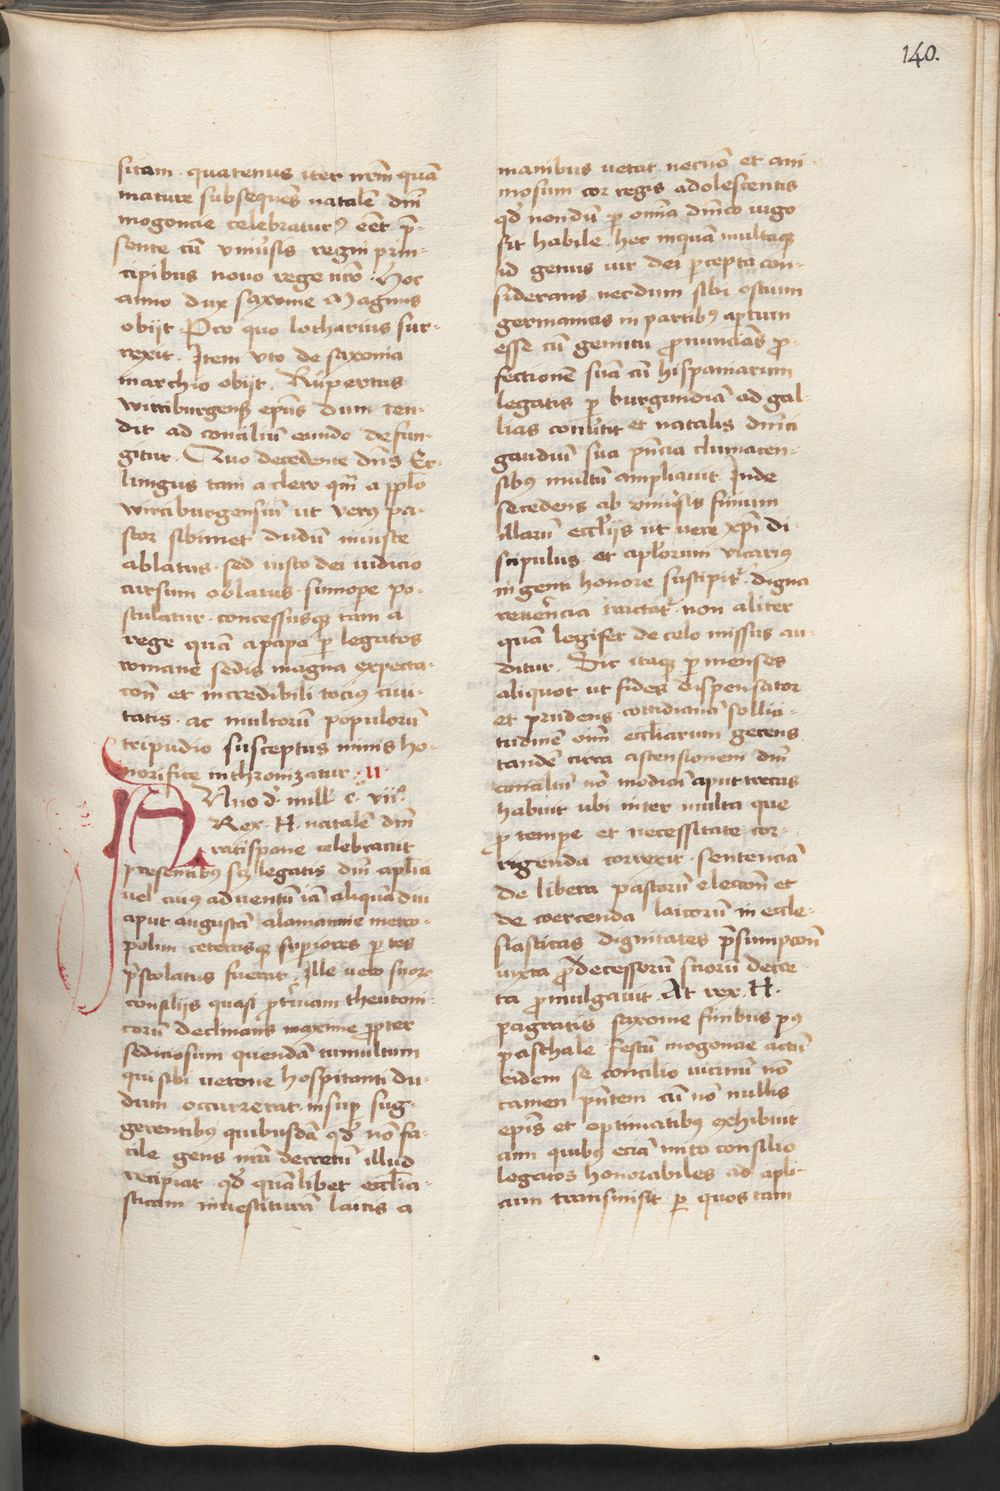 140.
sitam · quatenus iter nr̄m quā
mature subsequēs natalē dn̄i
mogoncie celebraturꝰ eēt p̄-
sente cū vniūsis regni prin-
cipibus novo rege nr̄o · Hoc
anno dux saxonie Magnus
obijt · Pro quo lotharius sur-
rexit · Item vto de saxonia
marchio obijt · Rupertus
wirciburgensꝫ ep̄us dum ten-
dit ad conciliū eundo defun-
gitur · Quo decedente dn̄s Er-
lungus tam a clero qm̄ a pp̄lo
wirciburgensiū ut verꝰ pa-
stor sibimet dudū iniuste
ablatus · sed iusto dei iudicio
cursum oblatus · sūmope po-
stulatur · concessusqꝫ tam a
rege quā a papa p̱ legatos
romane sedis magna expecta-
con̄e et incredibili tociꝰ ciui-
tatis · ac multorū populorū
tripudio susceptus nimis ho-
norifice inthronizatur · ıı
ANno d̄ mill̄ · c · vii°·
Rex · H · natalē dn̄i
ratispone celebrauit
presentibꝰ scꝫ legatis dn̄i ap̄lici
uel cuiꝰ aduentū iā aliquādiu
aput augustā alamannie metro-
polim ceterisqꝫ sup̱iores p̱tes
p̱stolatus fuerat · Ille uero suorꝫ
consilijs quasi p̱tiuaciam theutoni-
corū declinans maxime ꝓpter
sediciosum quendā tumultum
qui sibi uerone hospitanti du-
dum occurrerat · insup̱ sug-
gerentibꝰ quibusdā qd̓ nō fa-
cile gens nr̄a decretū illud
recipiat · qd̓ quālibet eccl̄ia-
sticam inuestiturā laicis a
manibus uetat · necnō et ani-
mosum cor regis adolescentis
qd̓ nondū p̱ om̄ia dn̄ico iugo
sit habile · hec inquā multaqꝫ
id genus vir dei p̱cepta con-
siderans · necdum sibi ostium
germanicis in partibꝰ ap̱tum
esse cū gemitu ꝓnuncians ꝓ-
fectionē suā cū hispaniarum
legatis p̱ burgundiā ad gal-
lias conūtit et natalis dn̄ici
gaudiū sua pn̄cia cluniacen-
sibꝰ multū ampliauit Inde
secedens ab vniūsis finium
illarū eccl̄ijs ut uere xp̄i di-
scipulus · et ap̄lorum vicariꝰ
ingenti honore suscipitᷣ · digna
reuerēncia tractatᷣ · non aliter
quā legifer de celo missus au-
ditur · Sic itaqꝫ p̱ menses
aliquot ut fides dispensator
et prudens cottidianā sollici-
tudinē om̄i eccl̄iarum gerens
tandē circa ascensionem dn̄i
conciliū nō modicū aput trecas
habuit ubi inter multa que
ꝓ temp̱e et necessitate cor-
rigenda correxit · sentenciā
de libera pastorū electōne et
de cohercenda laicorū in eccle-
siasticas dignitates p̄sumpcōne
iuxta ꝓdecessorū suorū decre-
ta ꝓmulgauit · At rex · H ·
pagratis saxonie finibus pꝰ
paschale festū mogoncie actū
eidem se concilio uicinū nō
tamen pn̄tem cū nō nullis
ep̄is et optimatibꝰ exhibuit
cum quibꝰ eciā inito consilio
legatos honorabiles ad apl̄i-
cum transmisit p̱ quos tam